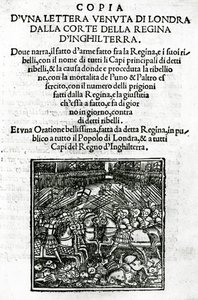 COPIA
D'VNA LETTERA VENVTA DI LONDRA
DALLA CORTE DELLA REGINA
D'INGHILTERRA.
Doue narra, il fatto d'arme fatto fra la Regina, e i suoi ri
belli, con il nome di tutti li Capi principali di detti
ribelli, & la causa donde e proceduta la ribellio
ne, con la mortalita de l'uno & l'altro es
sercito, con il numero delli prigioni
fatti dalla Regina, e la giustitia
ch'essa a fatto, e fa di gior
no in giorno, contra
di detti ribelli.
Et vna Oratione bellissima, fatta da detta Regina, in pu
blico a tutto il Popolo di Londra, & a tutti
Capi del Regno d'Inghilterra.